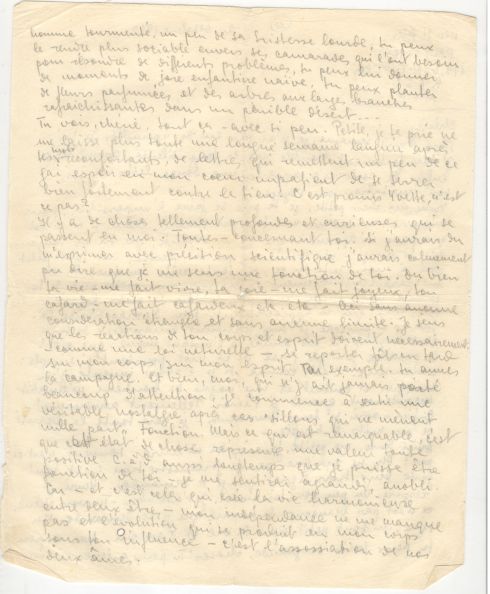 homme tourmenté, un peu de sa tristesse lourde, tu peux
le rendre plus sociable envers ses camarades qui l'ont besoin
pour résoudre de différents problèmes, tu peux lui donner
de moments de joie enfantine naïve, tu peux planter
de fleurs parfumées et des arbres aux larges branches
rafraichissantes dans un pénible désert....
Tu vois, chérie, tout ça - avec si peu. Petite, je te prie ne
me laisse plus toute une longue semaine languir après
tes mots reconfortants, de lettre, qui remettent un peu de ce
gai espoir en mon coeur impatient de se serrer
bien fortement contre le tien. C'est promis Yvette, n'est
ce pas?
Il y a de choses tellement profondes et curieuses qui se
passent en moi. Toutes - concernant toi. Si j'aurais du
m'exprimer avec précision scientifique j'aurais calmement
pu dire que je me sens une fonction de toi. Ou bien
ta vie - me fait vivre, ta joie - me fait joyeux, ton
cafard - me fait cafardeux etc etc. Ceci sans aucune
considération étrangée et sans aucune limite. Je sens
que les réactions de ton corps et esprit doivent nécessairement
- comme une loi naturelle - se reporter tôt ou tard
sur mon corps, sur mon esprit. Par exemple, tu aimes
la campagne. Et bien, moi, qui n'y ait jamais porté
beaucoup d'attention, je commence à sentir une
véritable nostalgie après ces sillons qui ne mènent
nulle part. Fonction. Mais ce qui est remarquable, c'est
que cet état de chose représente une valeur toute
positive. C.à.d. aussi longtemps que je puisse être
fonction de toi - je me sentirai agrandi, anobli.
Car - et c'est cela qui crée la vie harmonieuse
entre deux êtres - mon indépendance ne me manque
pas et l'évolution qui se produit en mon corps
sous ton influence - c'est l'assossiation de nos
deux âmes.